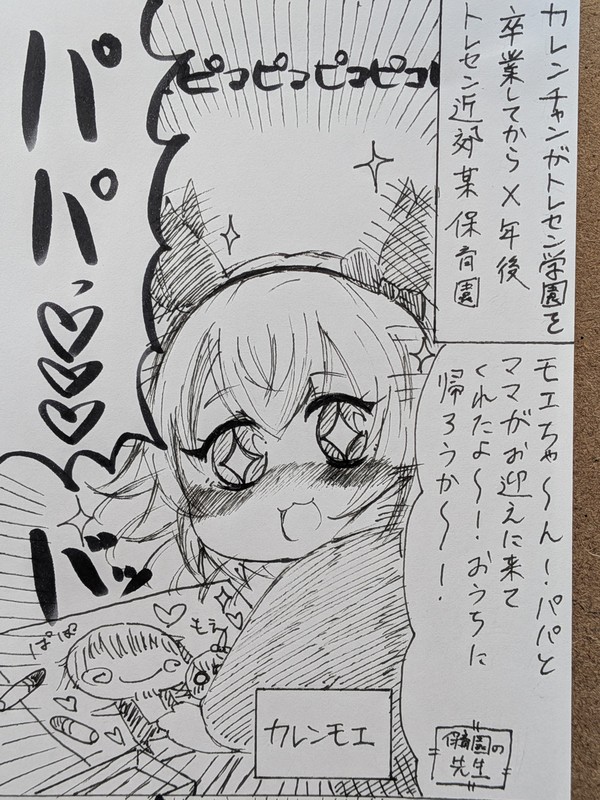 カレンチャンがトレセン学園を
卒業してから×年後
トレセン近郊某保育園
モエちゃ〜ん！パパと
ママがお迎えに来て
くれたよ〜！おうちに
帰ろうか〜！
保育園の
先生
ピコピコピコピコ
パパっ♡♡♡
バッ
ぱぱ
もえ
カレンモエ